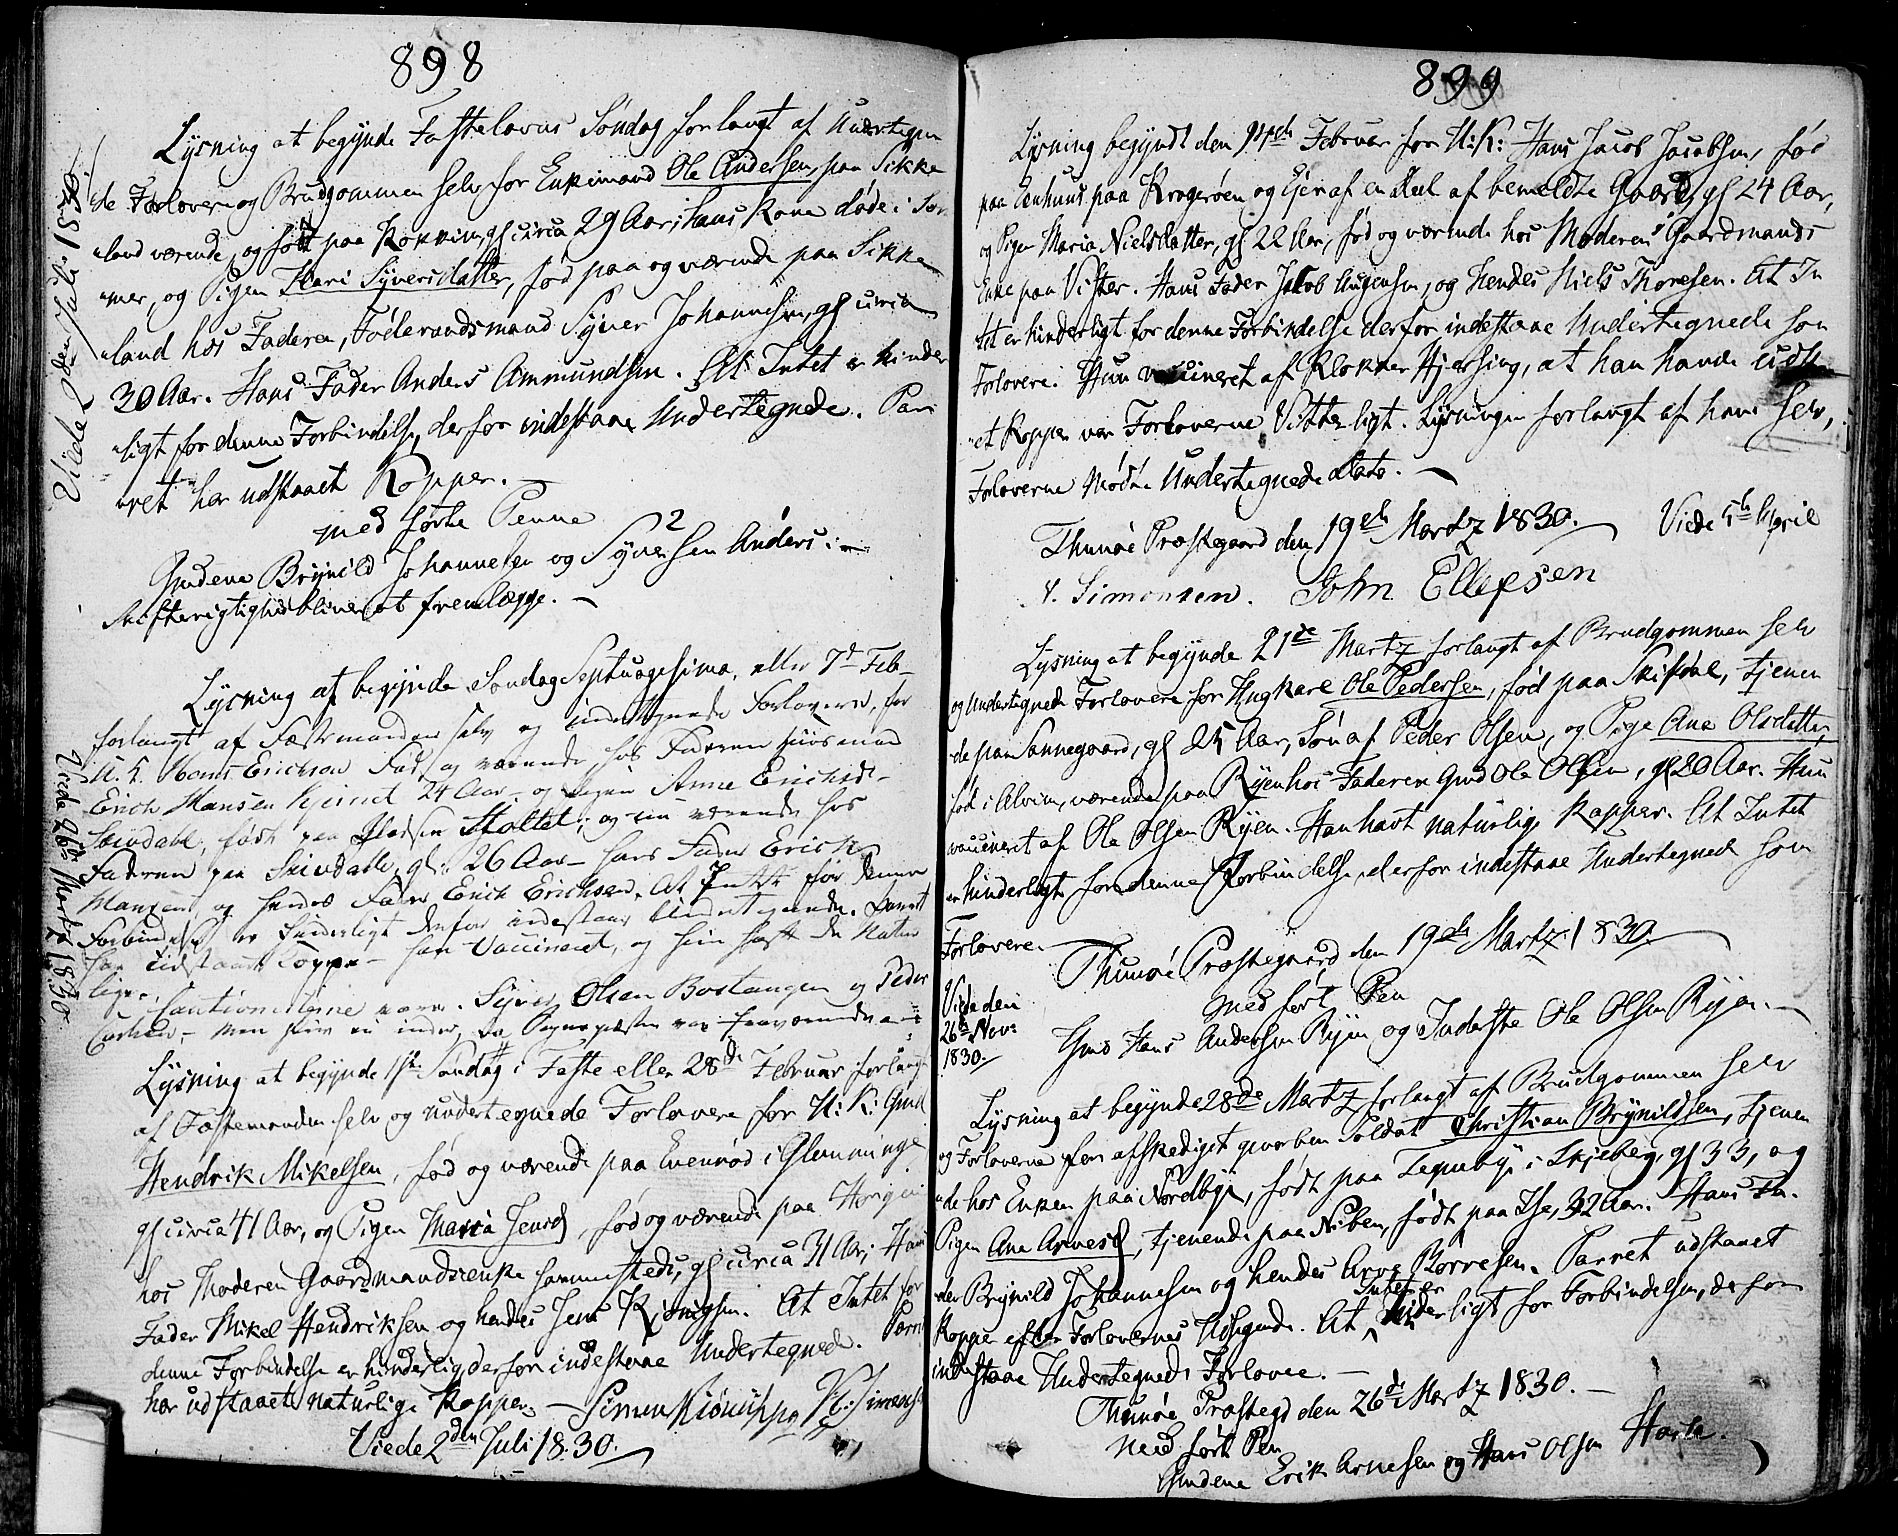 898
Lysning at begynde Fastelavns Søndag forlangt af Undertegne
de Forlovere og Brudgommen selv for Enkemand Ole Andersen, paa Sikke
land værende, og født paa Kokkim, gl circa 29 Aar; hans Kone døde i Som
mer, og Pigen Kari Syversdatter, fød paa og værende paa Sikke
land hos Faderen, Føderaadsmand Syver Johannesen, gl circa
30 Aar. Hans Fader Anders Ammundsen. At Intet er hinder
ligt for denne Forbindelse, derfor indestaae Undertegnede. Par
ret har udstaaet Kopper. —
med førte Penne
Gmdene Brynild Johannesen og Syversen Anders. —
Skifterigtighed bliver at fremlægge. —
Viede 2den Juli 1830
Lysning at begynde Søndag Septuagesima, eller 7d Feb_
forlangt af Fæstemanden selv og undertegnede Forlovere, for
U. K. Hans Erichsen Fød og værende hos Faderen Huusmand
Erich Hansen 24 Aar_ og Pigen Anne Erichsd_
født paa Pladsen Stoltet, og nu værende hos
Faderen paa gl: 26 Aar_ hans Fader Erich
Hansen, og hendes Fader Erich Erichsen. At Intet for denne
Forbindelse er hinderligt derfor indestaar Undertegnede. Parret
har udstaaet Kopper_ han Vaccineret, og hun haft de Natur
lige. Cautionisterne vare. Syver Olsen Bostangen og Peder
Viede 26de Martz 1830
Lysning at begynde 1ste Søndag i Faste eller 28de Februar forlangt
af Fæstemanden selv og undertegnede Forlovere for U: K: Gmd
Hendrik Mikelsen, fød og værende paa Evenrød i Glemminge
gl circa 41 Aar, og Pigen Maria Jensd, fød og værende paa Horgen
hos Moderen Gaardmandsenke sammesteds, gl circa 31 Aar; Hans
Fader Mikel Hendriksen og hendes Jens Kinigsen. At Intet for
denne Forbindelse er hinderlig, derfor indestaae Undertegnede. Parret
har udstaaet naturlige Kopper. —
Viede 2den Juli 1830.
899
Lysning begyndt den 14de Februar for U: K: Hans Jacob Jacobsen, fød
paa Eenhuus paa Kragerøen og Ejer af en Deel af bemeldte Gaard, gl 24 Aar,
og Pigen Maria Nielsdatter, gl 22 Aar, fød og værende hos Moderen Gaardmands
Enke paa Vister. Hans Fader Jakob Augensen, og hendes Niels Thoresen. At In
tet er hinderligt for denne Forbindelse derfor indestaae Undertegnede som
Forlovere. Hun vaccineret af Klokker Hjersing, at han havde udst
et Kopper var Forloverne Vitterligt. Lysningen forlangt af ham selv,
Forloverne Mødte Undertegnede Dato. —
Thunøe Præstegaard den 19de Martz 1830. Viede 5te April
S. Simonsen. John Ellefsen
Lysning at begynde 21de Martz forlangt af Brudgommen selv
og undertegnede Forlovere for Ungkarl Ole Pedersen, fød paa Skifdal, tjenen
de paa Sannegaard, gl 25 Aar, Søn af Peder Olsen, og Pige Ane Olsdatter,
fød i Alvim, værende paa Ryen hos Faderen Gmd Ole Olsen, gl 20 Aar. Hun
vaccineret af Ole Olsen Ryen. Han havt naturlige Kopper. At Intet
er hinderligt for denne Forbindelse, derfor indestaae Undertegned som
Forlovere.
Thunøe Præstegaard den 19de Martz 1830.
med ført Pen
Gmd Hans Andersen Ryen og Inderste Ole Olsen Ryen. —
Viede den
26de Nov:
1830.
Lysning at begynde 28de Martz forlangt af Brudgommen selv
og Forloverne for afskediget gvorben Soldat Christian Brynildsen, tjenen
de hos Enken paa Nordbye, født paa Tepneby i Skjeberg, gl 33, og
Pigen Ane Arnesd, tjenende paa Niben, født paa Ise, 32 Aar. Hans Fa
der Brynild Johannesen og hendes Arne Børresen. Parret udstaaet
Kopper efter Forlovernes Udsigende. At Intet er hinderligt for Forbindelsen, derfor
indestaae Undertegnede Forlovere. —
Thunøe Præstegd den 26de Martz 1830. —
med ført Pen
Gmdene Erik Arnesen og Hans Olsen Haale.